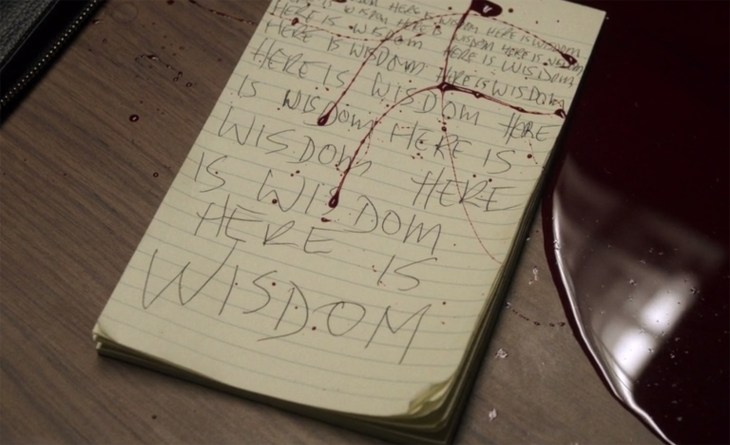 HERE IS WISDOM HERE IS WISDOM
HERE IS WISDOM HERE IS WISDOM HERE IS WISDOM
HERE IS WISDOM HERE IS WISDOM
HERE IS WISDOM HERE IS WISDOM
HERE IS WISDOM HERE
IS WISDOM HERE IS
WISDOM HERE
IS WISDOM
HERE IS
WISDOM